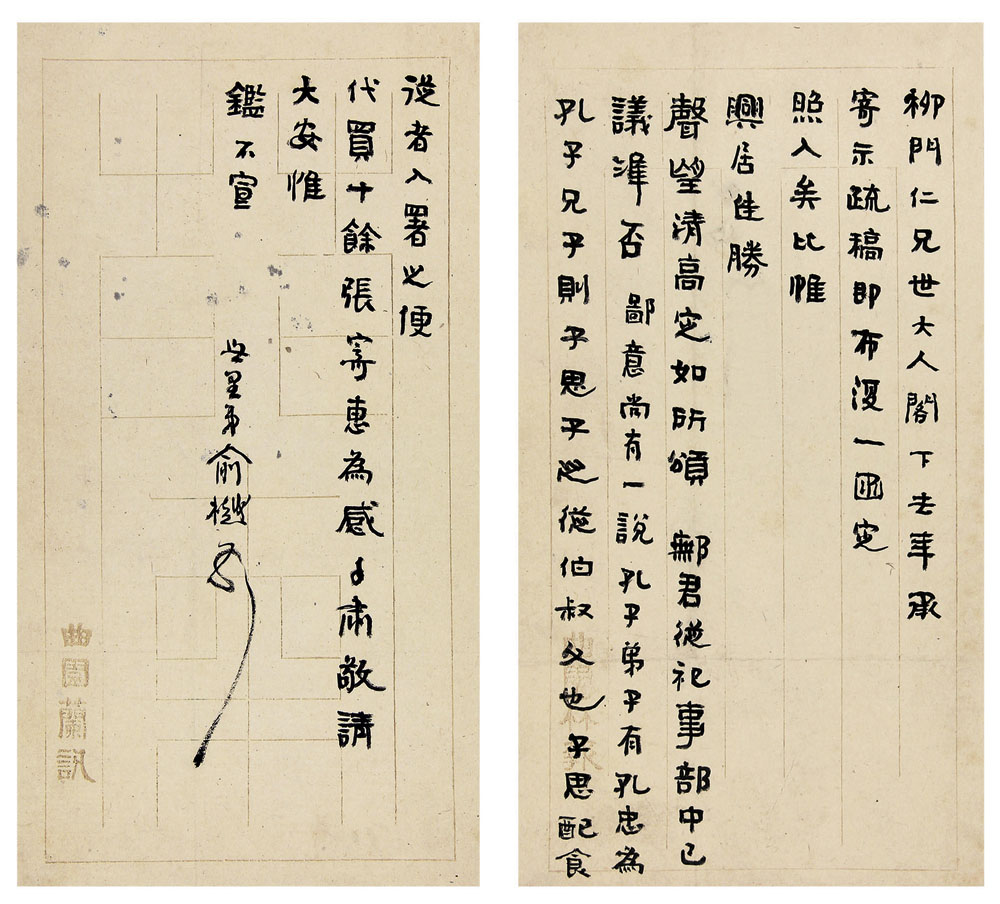 柳門仁兄世大人閣下去年承
寄示疏稿即布復一函定
照入矣比惟
興居佳勝
聲望清高定如所頌 鄦君從祀事部中已
議準否 鄙意尚有一說孔子弟子有孔忠為
孔子兄子則子思子之從伯叔父也子思配食
從者入署之便
代買十餘張寄惠為感手肅敬請
大安惟
鑑不宣
世愚弟俞樾頓首
曲園